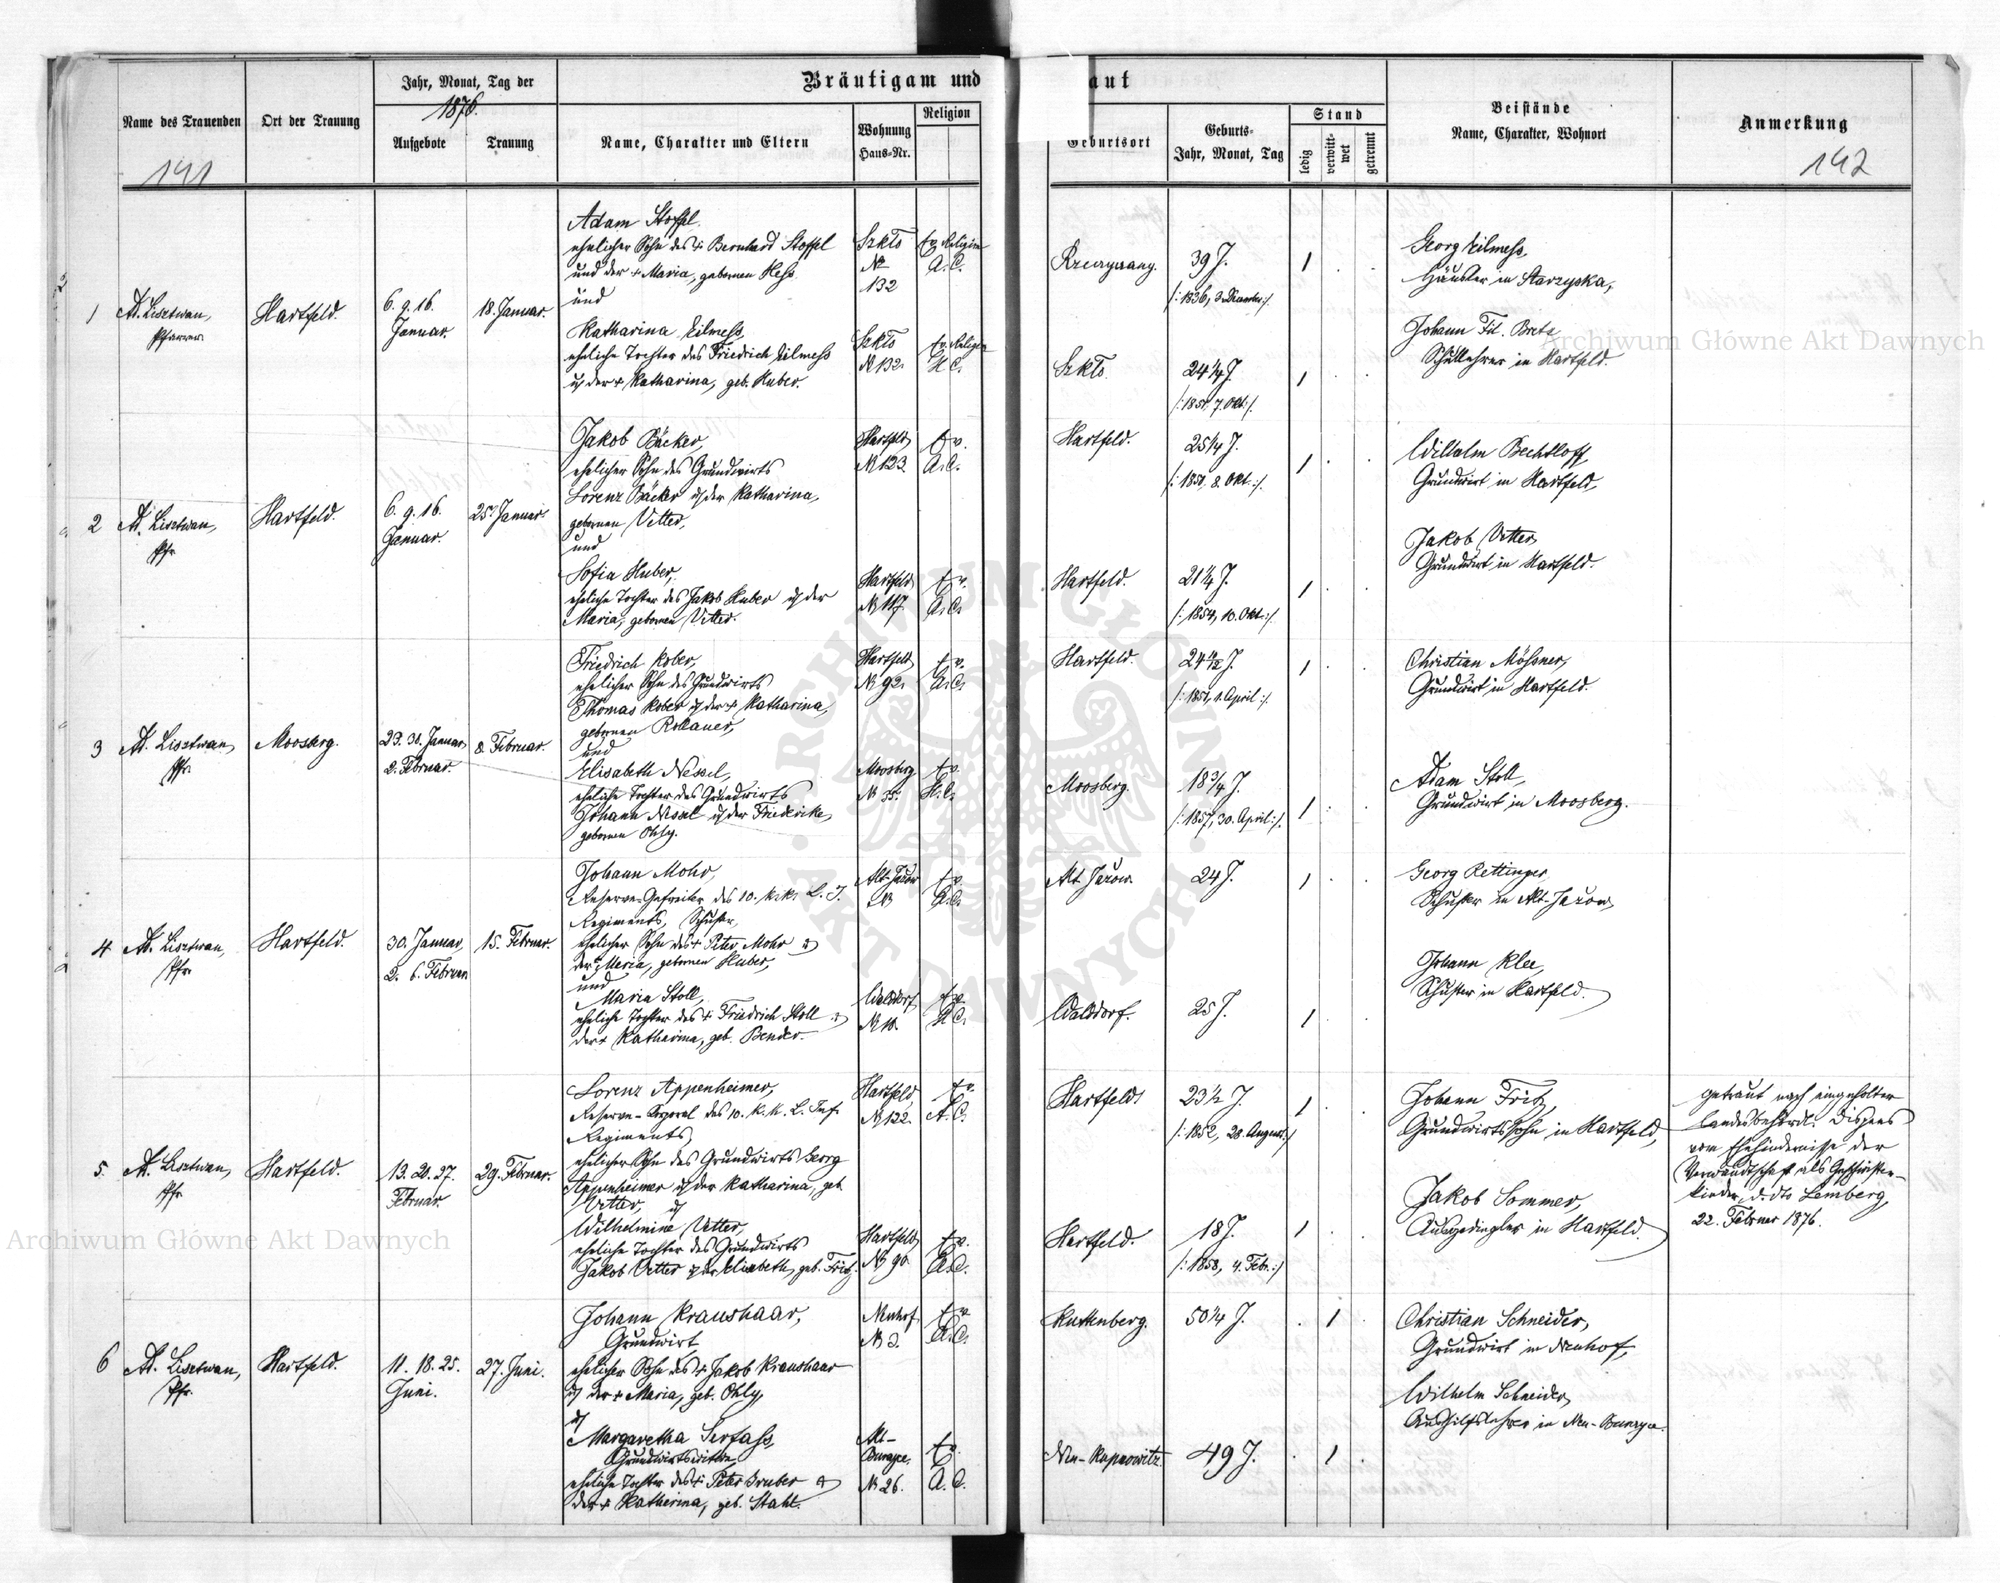 Bräutigam und
aut
Jahr, Monat, Tag der
1876.
Name des Trauenden
Ort der Trauung
Aufgebote
Trauung
Name, Charakter und Eltern
Wohnung
Haus-Nr.
Religion
Geburtsort
Geburts-
Jahr, Monat, Tag
Stand
ledig
verwitt-
wet
getrennt
Beistände
Name, Charakter, Wohnort
Anmerkung
191
192
1
Ad. Lisztwan,
Pfarrer.
Hartfeld.
6. 9. 16.
Januar.
18. Januar.
Adam Stoffel
ehelicher Sohn des + Bernhard Stoffel
und der + Maria, gebornen Hess
und
Katharina Eilmess,
eheliche Tochter des Friedrich Eilmess
u der + Katharina, geb. Huber.
Szkto
No
132
ev. Religion
A. C.
Szkto
N 132.
ev. Religion
H. C.
39 J.
/: 1836, 3. Dezember :/.
1
Szkto.
24 1/4 J.
/: 1851, 7. Okt. :/.
1
Georg Eilmess,
Häusler in Starzyska,
Johann Fil. Bretz
Schullehrer in Hartfeld.
2
Ad. Lisztwan,
Pfr.
Hartfeld.
6. 9. 16.
Januar.
25. Januar.
Jakob Bäcker,
ehelicher Sohn des Grundwirts
Lorenz Bäcker u der Katharina,
gebornen Vetter,
und
Sofia Huber,
eheliche Tochter des Jakob Huber u der
Maria, gebornen Vetter.
Hartfeld
N 123.
ev.
A. C.
Hartfeld
N 117
ev.
A. C.
Hartfeld.
25 1/4 J.
/: 1850, 8. Okt. :/.
1
Hartfeld.
21 1/4 J.
/: 1854, 10. Okt. :/.
1
Wilhelm Bechtloff,
Grundwirt in Hartfeld,
Jakob Vetter
Grundwirt in Hartfeld.
3
Ad. Lisztwan,
Pfr.
Moosberg.
23. 30. Januar,
2. Februar.
8. Februar.
Friedrich Kober,
ehelicher Sohn des Grundwirts
Thomas Kober u der + Katharina,
gebornen Rollauer,
und
Elisabeth Nessel,
eheliche Tochter des Grundwirts
Johann Nessel u der Friederike,
gebornen Ohly.
Hartfeld
N 92.
ev.
A. C.
Moosberg
N 35.
ev.
H. C.
Hartfeld.
/: 1851, 1. April :/.
1
Moosberg.
18 3/4 J.
/: 1857, 30. April :/.
1
Christian Mössner,
Grundwirt in Hartfeld.
Adam Stoll,
Grundwirt in Moosberg.
4
Ad. Lisztwan,
Pfr.
Hartfeld.
30. Januar,
2. 6. Februar
15. Februar.
Johann Mohr,
Reserve-Gefreiter des 10. k. k. L. I.
Regiments, Schuster,
ehelicher Sohn des + Peter Mohr u
der Maria, gebornen Huber,
und
Maria Stoll,
eheliche Tochter des + Friedrich Stoll u
der + Katharina, geb. Bender.
Alt-Jazow
N
ev.
A. C.
Walddorf
N 10.
ev.
H. C.
Alt Jazow
24 J.
1
Walddorf.
25 J.
1
Georg Rettinger,
Schuster in Alt-Jazow,
Johann Klee,
Schuster in Hartfeld.
5
Ad. Lisztwan,
Pfr.
Hartfeld.
13. 20. 27.
Februar.
29. Februar.
Lorenz Appenheimer,
Reserve-Korporal des 10. k. k. L. Inf.
Regiments,
ehelicher Sohn des Grundwirts Georg
Appenheimer u der Katharina, geb.
Vetter, u
Wilhelmine Vetter,
eheliche Tochter des Grundwirts
Jakob Vetter u der Elisabeth, geb. Fritz.
Hartfeld
N 122.
ev.
A. C.
Hartfeld
N 90.
ev.
A. C.
Hartfeld
23 1/2 J.
/: 1852, 28. August :/
1
Hartfeld.
18 J.
/: 1858, 4. Febr. :/
1
Johann Fritz,
Grundwirtssohn in Hartfeld,
Jakob Sommer,
Ausgedingler in Hartfeld.
getraut nach eingeholter
landesbehördl. Dispens
vom Ehehindernisse der
Verwandtschaft als Geschwister-
kinder, d. dto Lemberg,
22. Februar 1876.
6
Ad. Lisztwan,
Pfr.
Hartfeld.
11. 18. 25.
Juni.
27. Juni.
Johann Kraushaar,
Grundwirt
ehelicher Sohn des + Jakob Kraushaar
u der + Maria, geb. Ohly,
u
Margaretha Serfass,
Grundwirtswitwe
eheliche Tochter des + Peter Gruber u
der + Katharina, geb. Stahl.
Neuhof
N 3.
ev.
A. C.
Alt-
N 26.
ev.
A. C.
Kuttenberg.
50 1/4 J.
1
Neu-Kupnowitz
49 J.
1
Christian Schneider,
Grundwirt in Neuhof,
Wilhelm Schneider,
Aushilfslehrer in Neu-
Archiwum Główne Akt Dawnych
Archiwum Główne Akt Dawnych
ARCHIWUM GŁÓWNE
AKT DAWNYCH